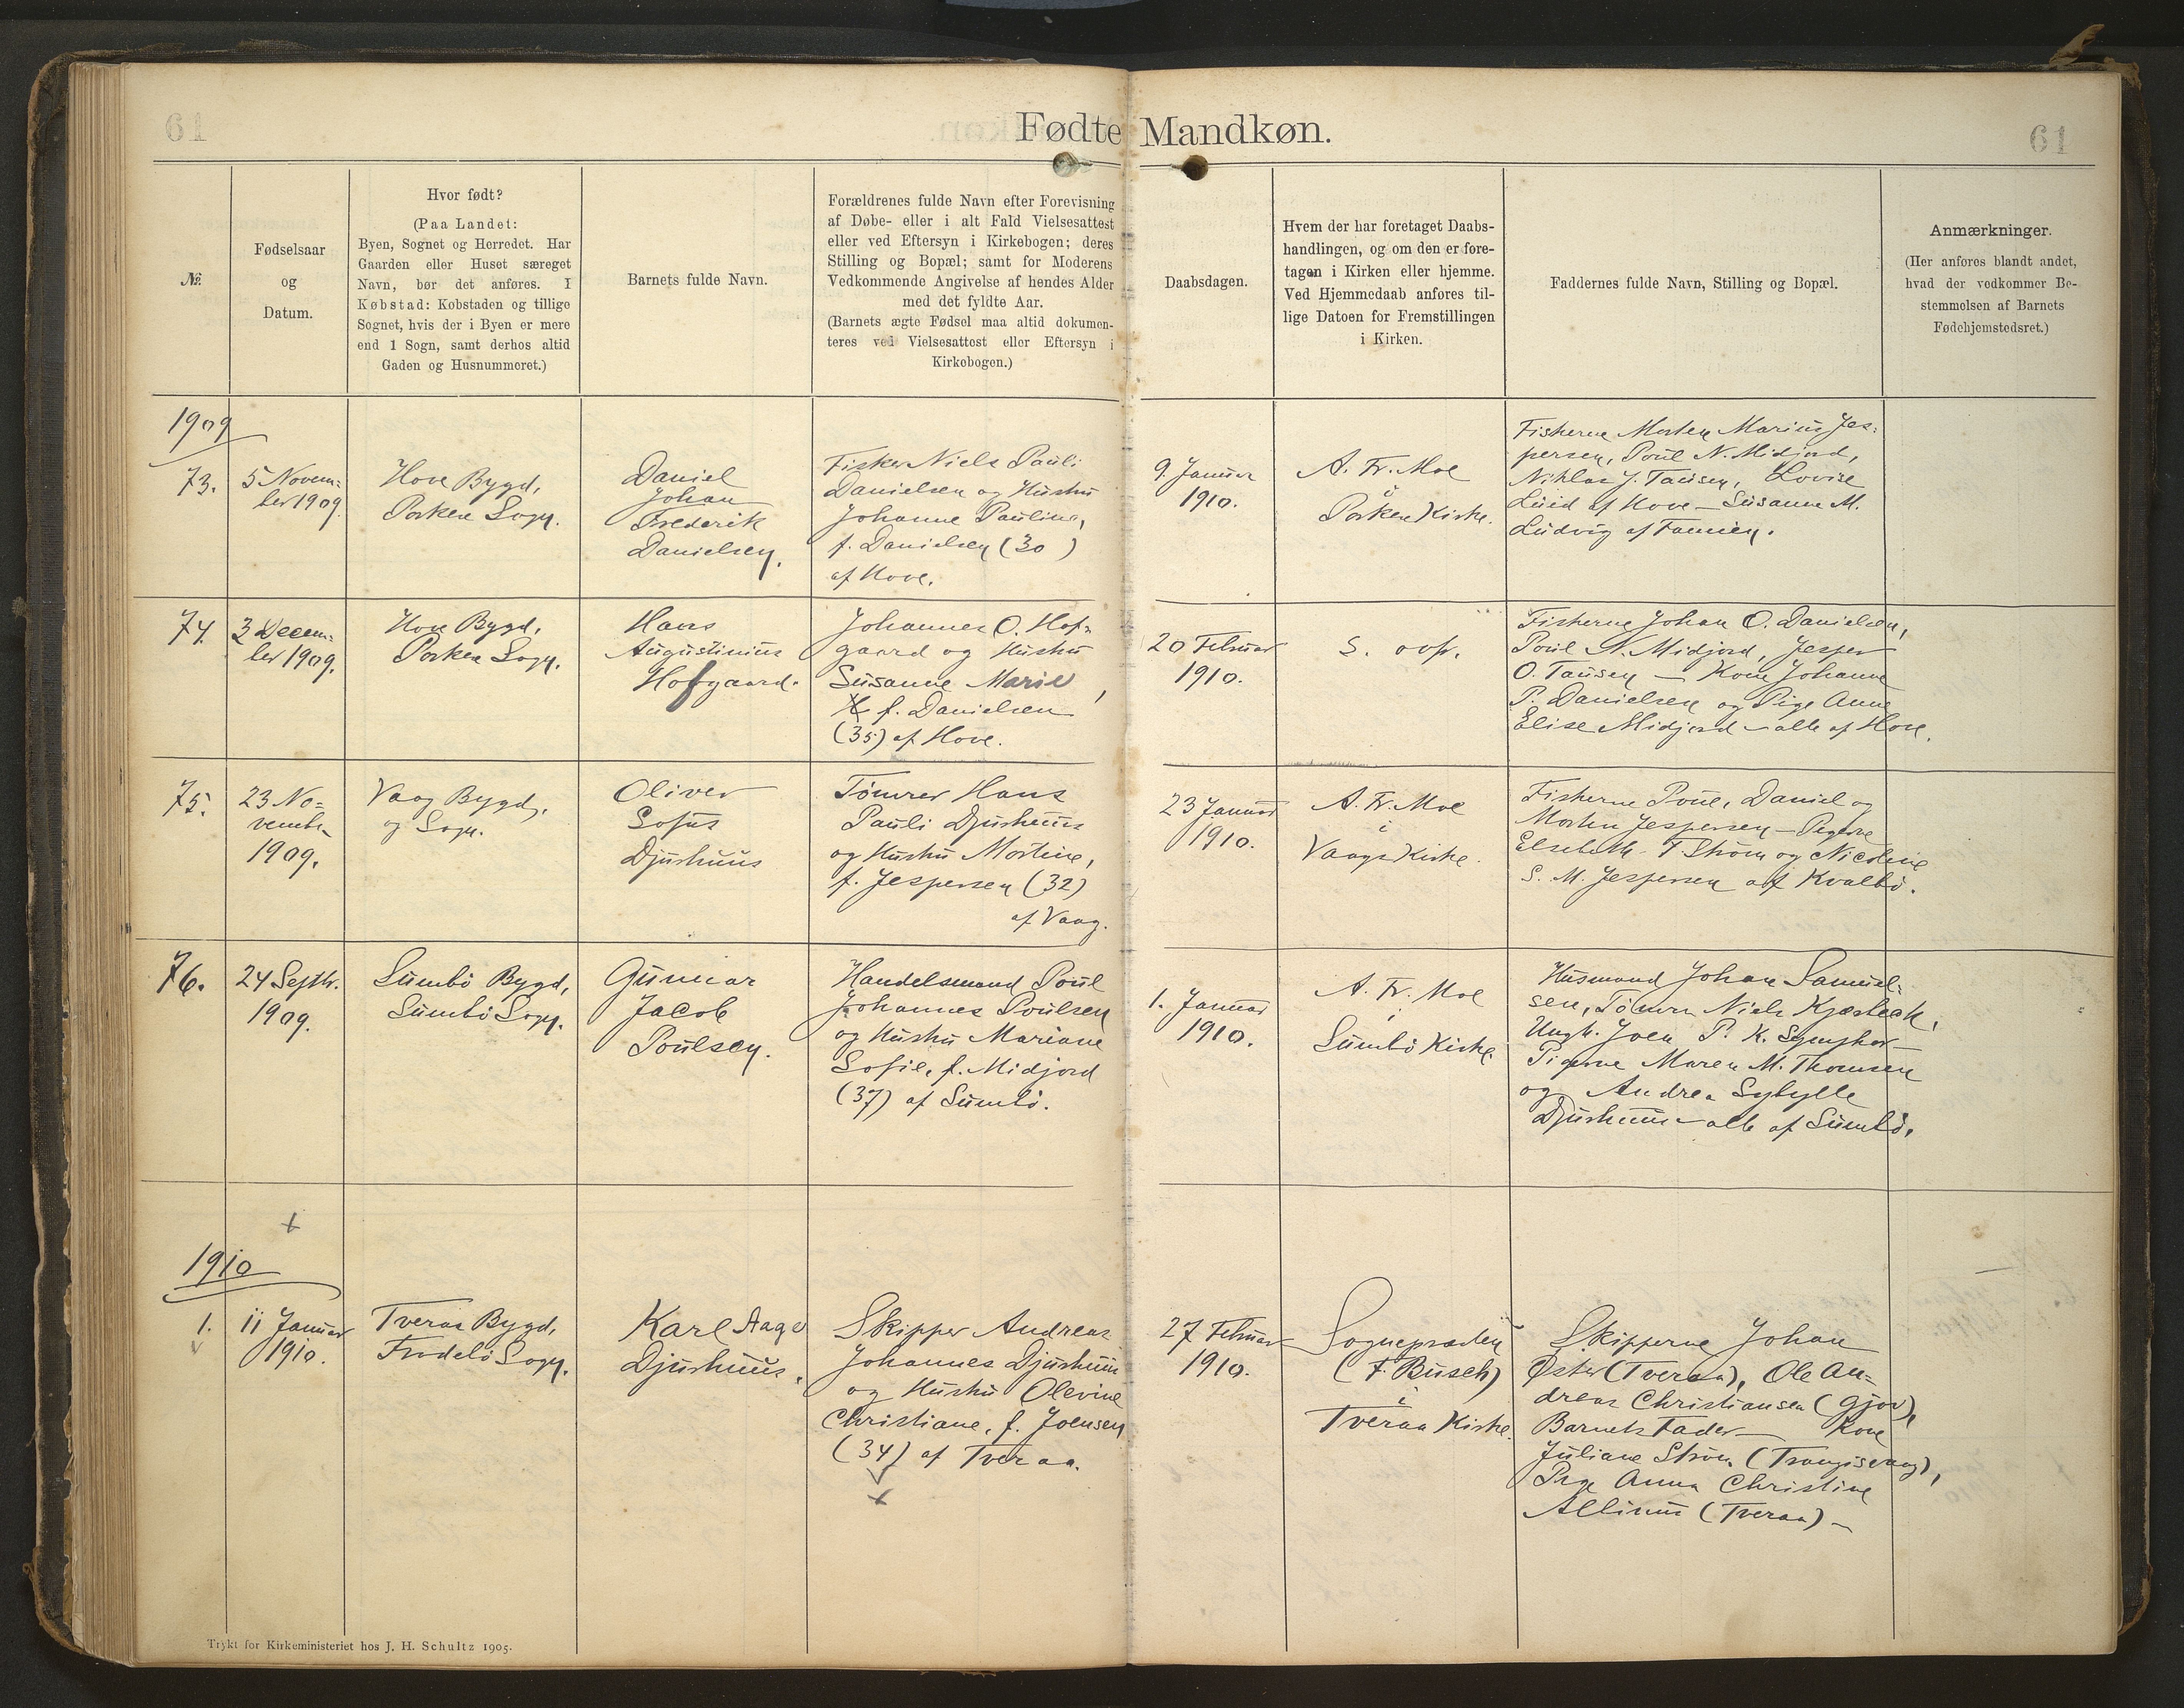 61
Fødte Mandkøn.
61
№
Fødselsaar
og
Datum.
Hvor født?
(Paa Landet:
Byen, Sognet og Herredet. Har
Gaarden eller Huset særeget
Navn, bør det anføres. I
Købstad: Købstaden og tillige
Sognet, hvis der i Byen er mere
end 1 Sogn, samt derhos altid
Gaden og Husnummeret.)
Barnets fulde Navn.
Forældrenes fulde Navn efter Forevisning
af Døbe- eller i alt Fald Vielsesattest
eller ved Eftersyn i Kirkebogen; deres
Stilling og Bopæl; samt for Moderens
Vedkommende Angivelse af hendes Alder
med det fyldte Aar.
(Barnets ægte Fødsel maa altid dokumen-
teres ved Vielsesattest eller Eftersyn i
Kirkebogen.)
Daabsdagen.
Hvem der har foretaget Daabs-
handlingen, og om den er fore-
tagen i Kirken eller hjemme.
Ved Hjemmedaab anføres til-
lige Datoen for Fremstillingen
i Kirken.
Faddernes fulde Navn, Stilling og Bopæl.
Anmærkninger.
(Her anføres blandt andet,
hvad der vedkommer Be-
stemmelsen af Barnets
Fødehjemstedsret.)
1909
73.
5 Novem=
ber 1909.
Hove Bygd,
Porkere Sogn.
Daniel
Johan
Frederik
Danielsen.
Fisker Niels Pauli
Danielsen og Hustru
Johanne Pauline,
f. Danielsen (30)
af Hove.
9. Januar
1910.
A. Fr. Moe
i
Porkere Kirke.
Fiskerne Morten Marius Jes=
persen, Poul N. Midjord,
Niklas J. Tausen, Lovise
Luid af Hove – Susanne M.
Ludvig af Famien.
74.
3 Decem=
ber 1909.
Hove Bygd,
Porkere Sogn.
Hans
Augustinius
Hofgaard.
Johannes O. Hof=
gaard og Hustru
Susanne Marie,
f. Danielsen
(35) af Hove.
20 Februar
1910.
S. ovf.
Fiskerne Johan O. Danielsen,
Poul N. Midjord, Jesper
O. Tausen – Kone Johanne
P. Danielsen og Pige Anne
Elise Midjord – alle af Hove.
75.
23 No=
vember
1909.
Vaag Bygd,
og Sogn.
Oliver
Sofus
Djurhuus
Tömrer Hans
Pauli Djurhuus
og Hustru Mortine,
f. Jespersen (32)
af Vaag.
23 Januar
1910.
A. Fr. Moe
i
Vaags Kirke.
Fiskerne Poul, Daniel og
Morten Jespersen – Pigerne
Elsebeth T. Strøm og Nicoline
S. M. Jespersen af Kvalbö.
76.
24 Septbr.
1909.
Sumbö Bygd,
Sumbö Sogn.
Gunnar
Jacob
Poulsen.
Handelsmand Poul
Johannes Poulsen
og Hustru Mariane
Sofie, f. Midjord
(37) af Sumbö.
1. Januar
1910.
A. Fr. Moe
i
Sumbö Kirke.
Husmand Johan Samuel=
sen, Tömrer Niels Kjærbæk,
Ungk. Joen P. K.
Pigerne Maren M. Thomsen
og Andrea Sybylle
Djurhuus – alle af Sumbö.
1910
1.
11 Januar
1910.
Tveraa Bygd,
Frodebö Sogn.
Karl Aage
Djurhuus.
Skipper Andreas
Johannes Djurhuus
og Hustru Olevine
Christiane, f. Joensen
(34) af Tveraa.
27 Februar
1910.
Sognepræsten
(F. Busch)
i
Tveraa Kirke.
Skipperne Johan
Øster (Tveraa), Ole An=
dreas Christiansen (Gjov),
Barnets Fader – Kone
Juliane Strøm (Trangisvaag),
Pige Anna Christine
(Tveraa) –
Trykt for Kirkeministeriet hos J. H. Schultz 1905.